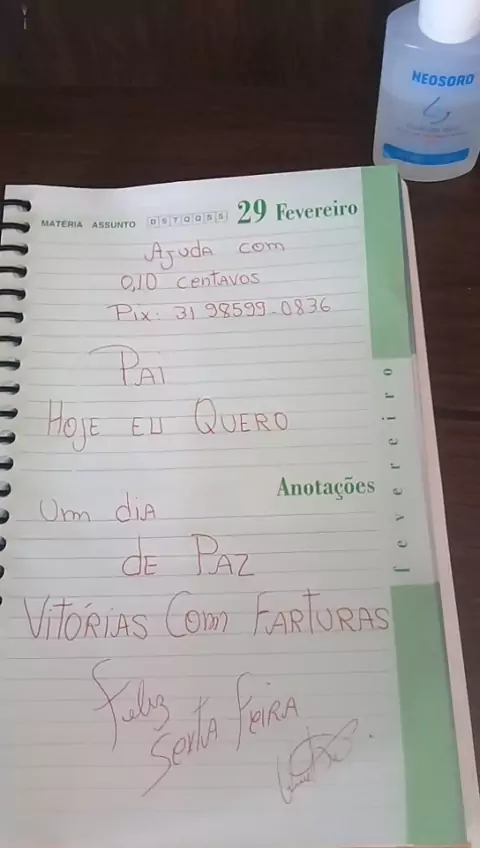 NEOSORO
MATÉRIA ASSUNTO D S T Q Q S S 29 Fevereiro
Ajuda com
0,10 centavos
Pix: 31 98599-0836
Pai
Hoje eu Quero
Anotações
Um dia
de Paz
Vitórias Com Farturas
Feliz
Sexta Feira
fevereiro